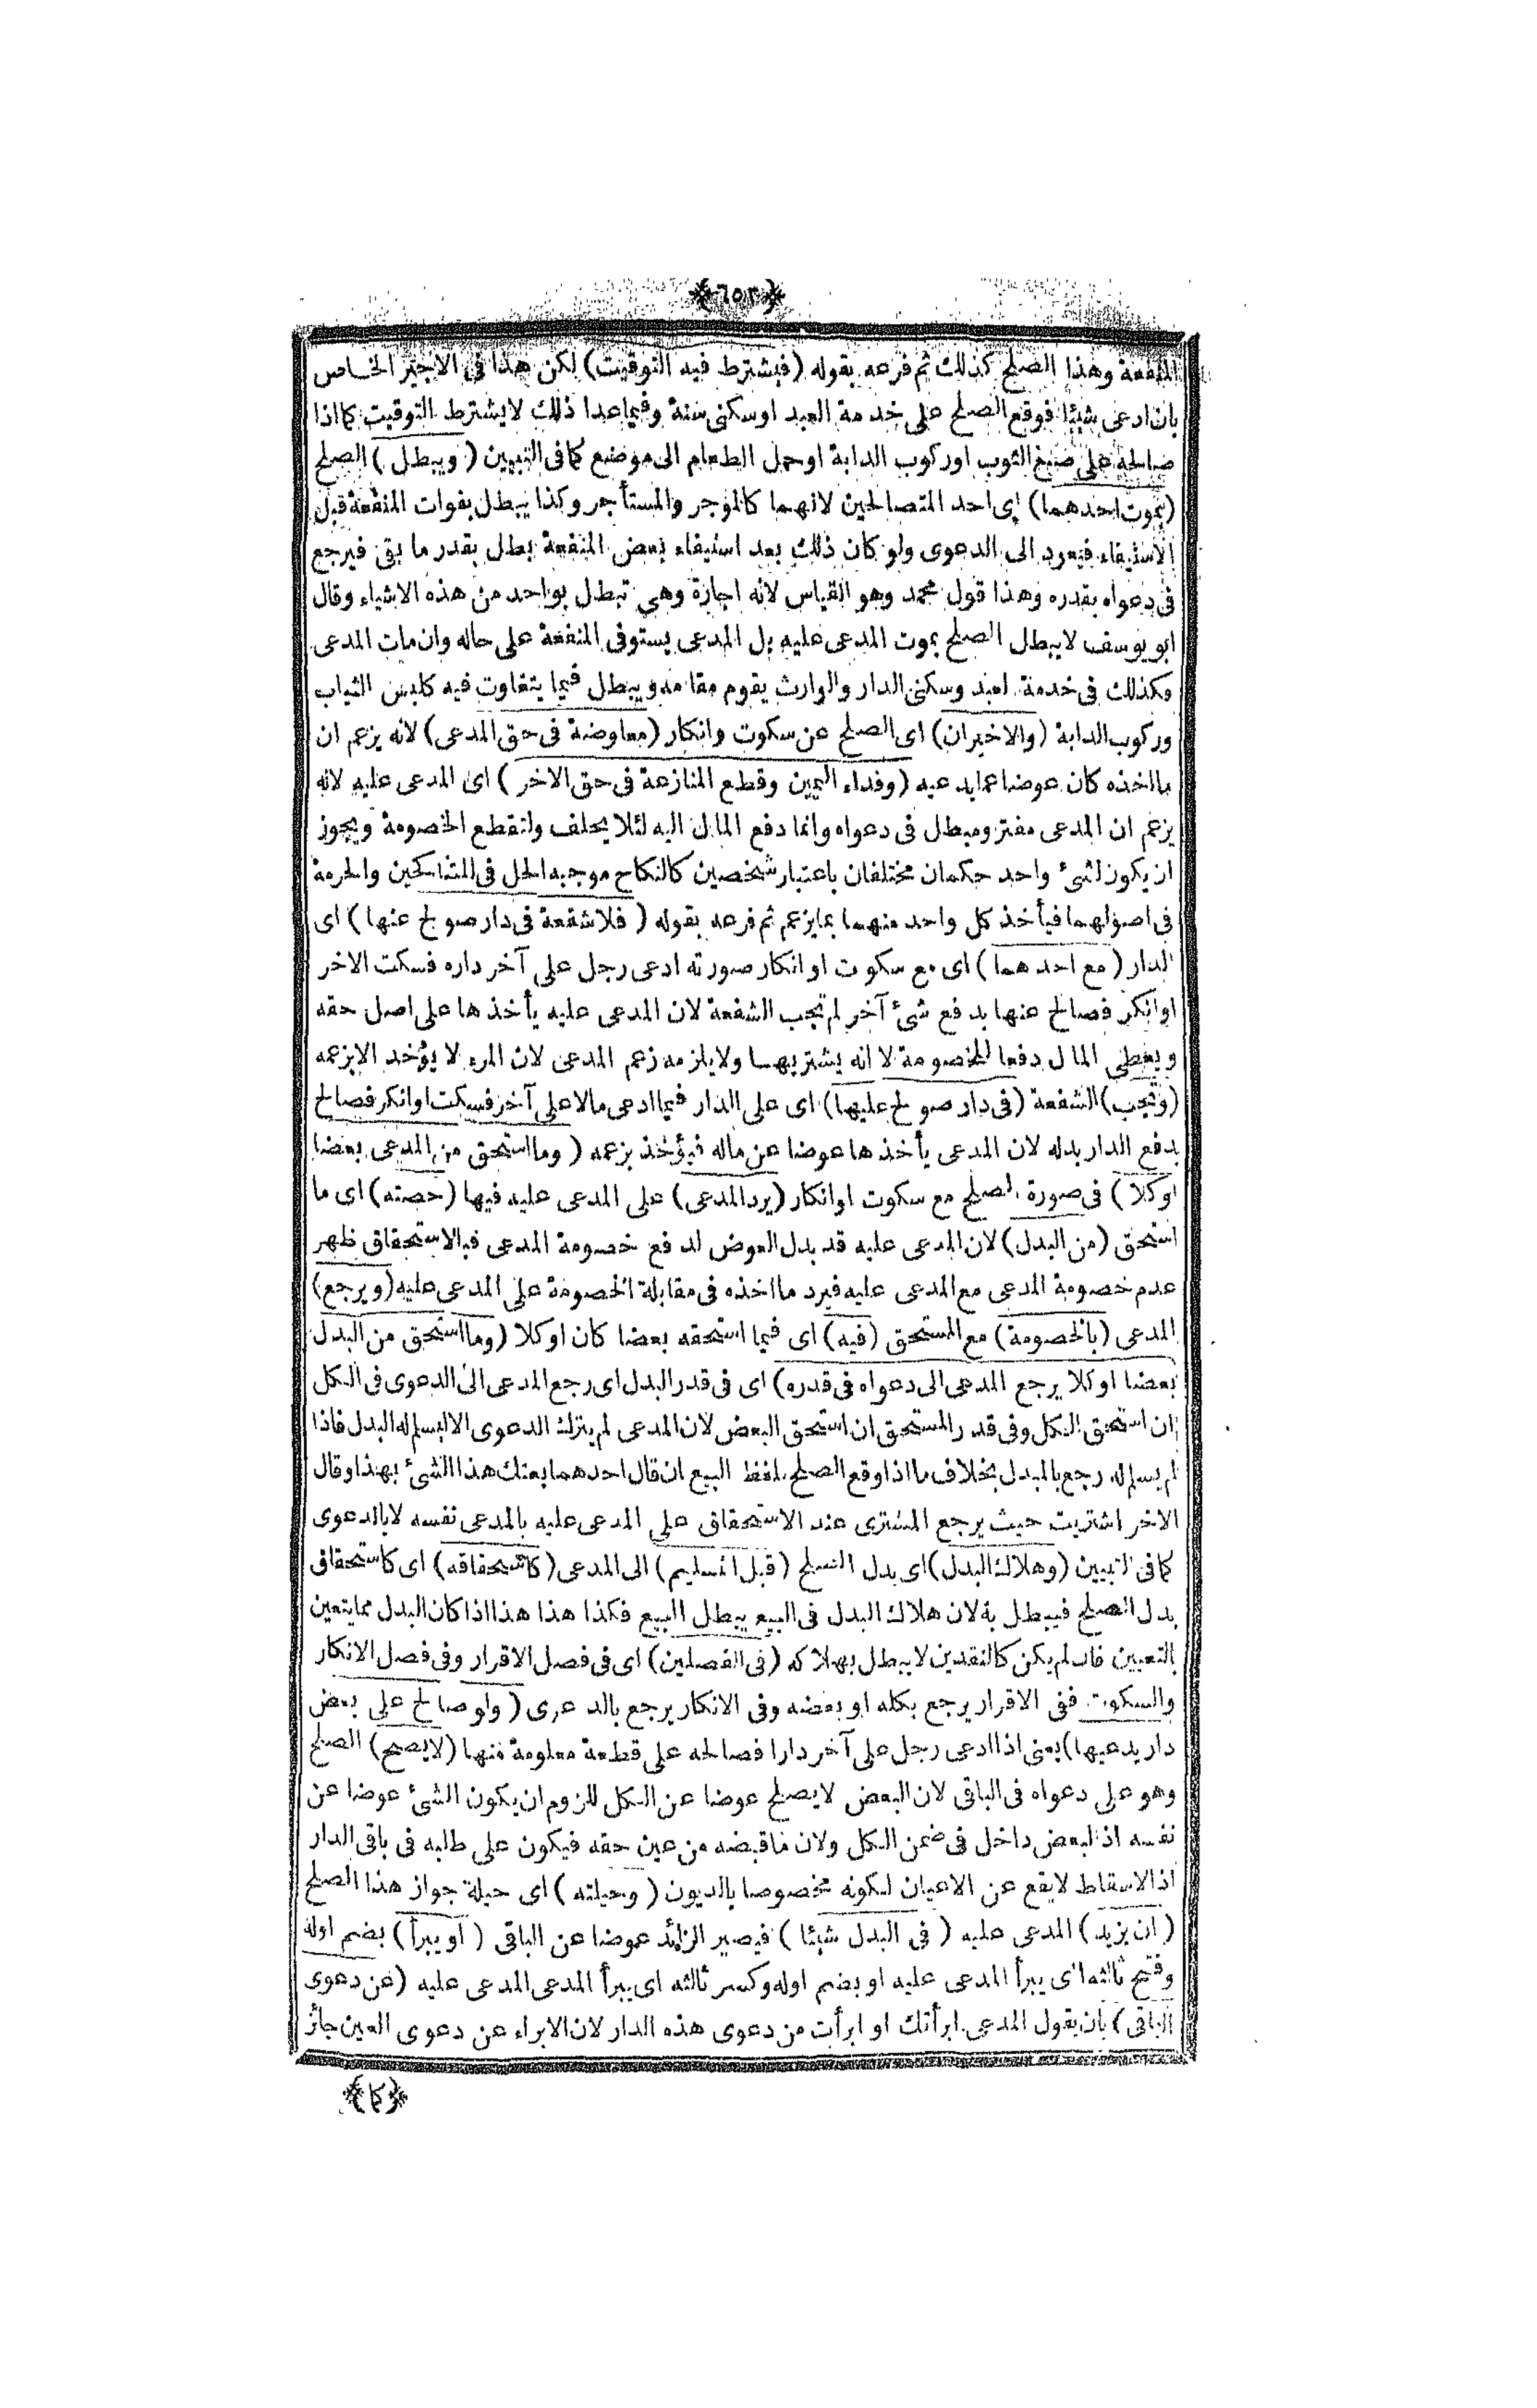 ﴿٦٥٢﴾
المنفعة وهذا الصلح كذلك ثم فرعه بقوله (فيشترط فيه التوقيت) لكن هذا فى الاجير الخاص
بان ادعى شيئا فوقع الصلح على خدمة العبد اوسكنى سنة وفيما عدا ذلك لا يشترط التوقيت كما اذا
صالحه على صبغ الثوب اوركوب الدابة اوحمل الطعام الى موضع كما فى التبيين (ويبطل) الصلح
(بموت احدهما) اى احد المتصالحين لانهما كالمؤجر والمستأجر وكذا يبطل بفوات المنفعة قبل
الاستيفاء فيعود الى الدعوى ولو كان ذلك بعد استيفاء بعض المنفعة بطل بقدر ما بقى فيرجع
فى دعواه بقدره وهذا قول محمد وهو القياس لانه اجارة وهى تبطل بواحد من هذه الاشياء وقال
ابو يوسف لا يبطل الصلح بموت المدعى عليه بل المدعى يستوفى المنفعة على حاله وان مات المدعى
فكذلك فى خدمة العبد وسكنى الدار والوارث يقوم مقامه ويبطل فيما يتفاوت فيه كلبس الثياب
وركوب الدابة (والاخيران) اى الصلح عن سكوت وانكار (معاوضة فى حق المدعى) لانه يزعم ان
ما اخذه كان عوضا عما يدعيه (وفداء اليمين وقطع المنازعة فى حق الاخر) اى المدعى عليه لانه
يزعم ان المدعى مفتر ومبطل فى دعواه وانما دفع المال اليه لئلا يحلف ولتقطع الخصومة ويجوز
ان يكون لشئ واحد حكمان مختلفان باعتبار شخصين كالنكاح موجبه الحل فى المتناكحين والحرمة
فى اصولهما فيأخذ كل واحد منهما بما يزعم ثم فرعه بقوله (فلا شفعة فى دار صولح عنها) اى
الدار (مع احدهما) اى مع سكوت او انكار صورته ادعى رجل على آخر داره فسكت الاخر
او انكر فصالح عنها بدفع شئ آخر لم تجب الشفعة لان المدعى عليه يأخذها على اصل حقه
ويعطى المال دفعا للخصومة لا انه يشتريها ولا يلزمه زعم المدعى لان المرء لا يؤخذ الا بزعمه
(وتجب) الشفعة (فى دار صولح عليها) اى على الدار فيما ادعى مالا على آخر فسكت اوانكر فصالح
بدفع الدار بدله لان المدعى يأخذها عوضا عن ماله فيؤخذ بزعمه (وما استحق من المدعى بعضا
اوكلا) فى صورة الصلح مع سكوت اوانكار (يرد المدعى) على المدعى عليه فيها (حصته) اى ما
استحق (من البدل) لان المدعى عليه قد بدل العوض لدفع خصومة المدعى فبالاستحقاق ظهر
عدم خصومة المدعى مع المدعى عليه فيرد ما اخذه فى مقابلة الخصومة على المدعى عليه (ويرجع)
المدعى (بالخصومة) مع المستحق (فيه) اى فيما استحقه بعضا كان اوكلا (وما استحق من البدل
بعضا اوكلا يرجع المدعى الى دعواه فى قدره) اى فى قدر البدل اى رجع المدعى الى الدعوى فى الكل
ان استحق الكل وفى قدر المستحق ان استحق البعض لان المدعى لم يترك الدعوى الا ليسلم له البدل فاذا
لم يسلم له رجع بالمبدل بخلاف ما اذا وقع الصلح بلفظ البيع ان قال احدهما بعتك هذا الشئ بهذا وقال
الاخر اشتريت حيث يرجع المشترى عند الاستحقاق على المدعى عليه بالمدعى نفسه لا بالدعوى
كما فى التبيين (وهلاك البدل) اى بدل الصلح (قبل التسليم) الى المدعى (كاستحقاقه) اى كاستحقاق
بدل الصلح فيبطل به لان هلاك البدل فى البيع يبطل البيع فكذا هذا هذا اذا كان البدل مما يتعين
بالتعيين فان لم يكن كالنقدين لا يبطل بهلاكه (فى الفصلين) اى فى فصل الاقرار وفى فصل الانكار
والسكوت ففى الاقرار يرجع بكله او بعضه وفى الانكار يرجع بالدعوى (ولو صالح على بعض
دار يدعيها) يعنى اذا ادعى رجل على آخر دارا فصالحه على قطعة معلومة منها (لا يصح) الصلح
وهو على دعواه فى الباقى لان البعض لا يصلح عوضا عن الكل للزوم ان يكون الشئ عوضا عن
نفسه اذ البعض داخل فى ضمن الكل ولان ما قبضه من عين حقه فيكون على طلبه فى باقى الدار
اذ الاسقاط لا يقع عن الاعيان لكونه مخصوصا بالديون (وحيلته) اى حيلة جواز هذا الصلح
(ان يزيد) المدعى عليه (فى البدل شيئا) فيصير الزائد عوضا عن الباقى (او يبرأ) بضم اوله
وفتح ثالثه اى يبرأ المدعى عليه او بضم اوله وكسر ثالثه اى يبرأ المدعى المدعى عليه (عن دعوى
الباقى) بان يقول المدعى ابرأتك او ابرأت من دعوى هذه الدار لان الابراء عن دعوى العين جائز
﴿كما﴾